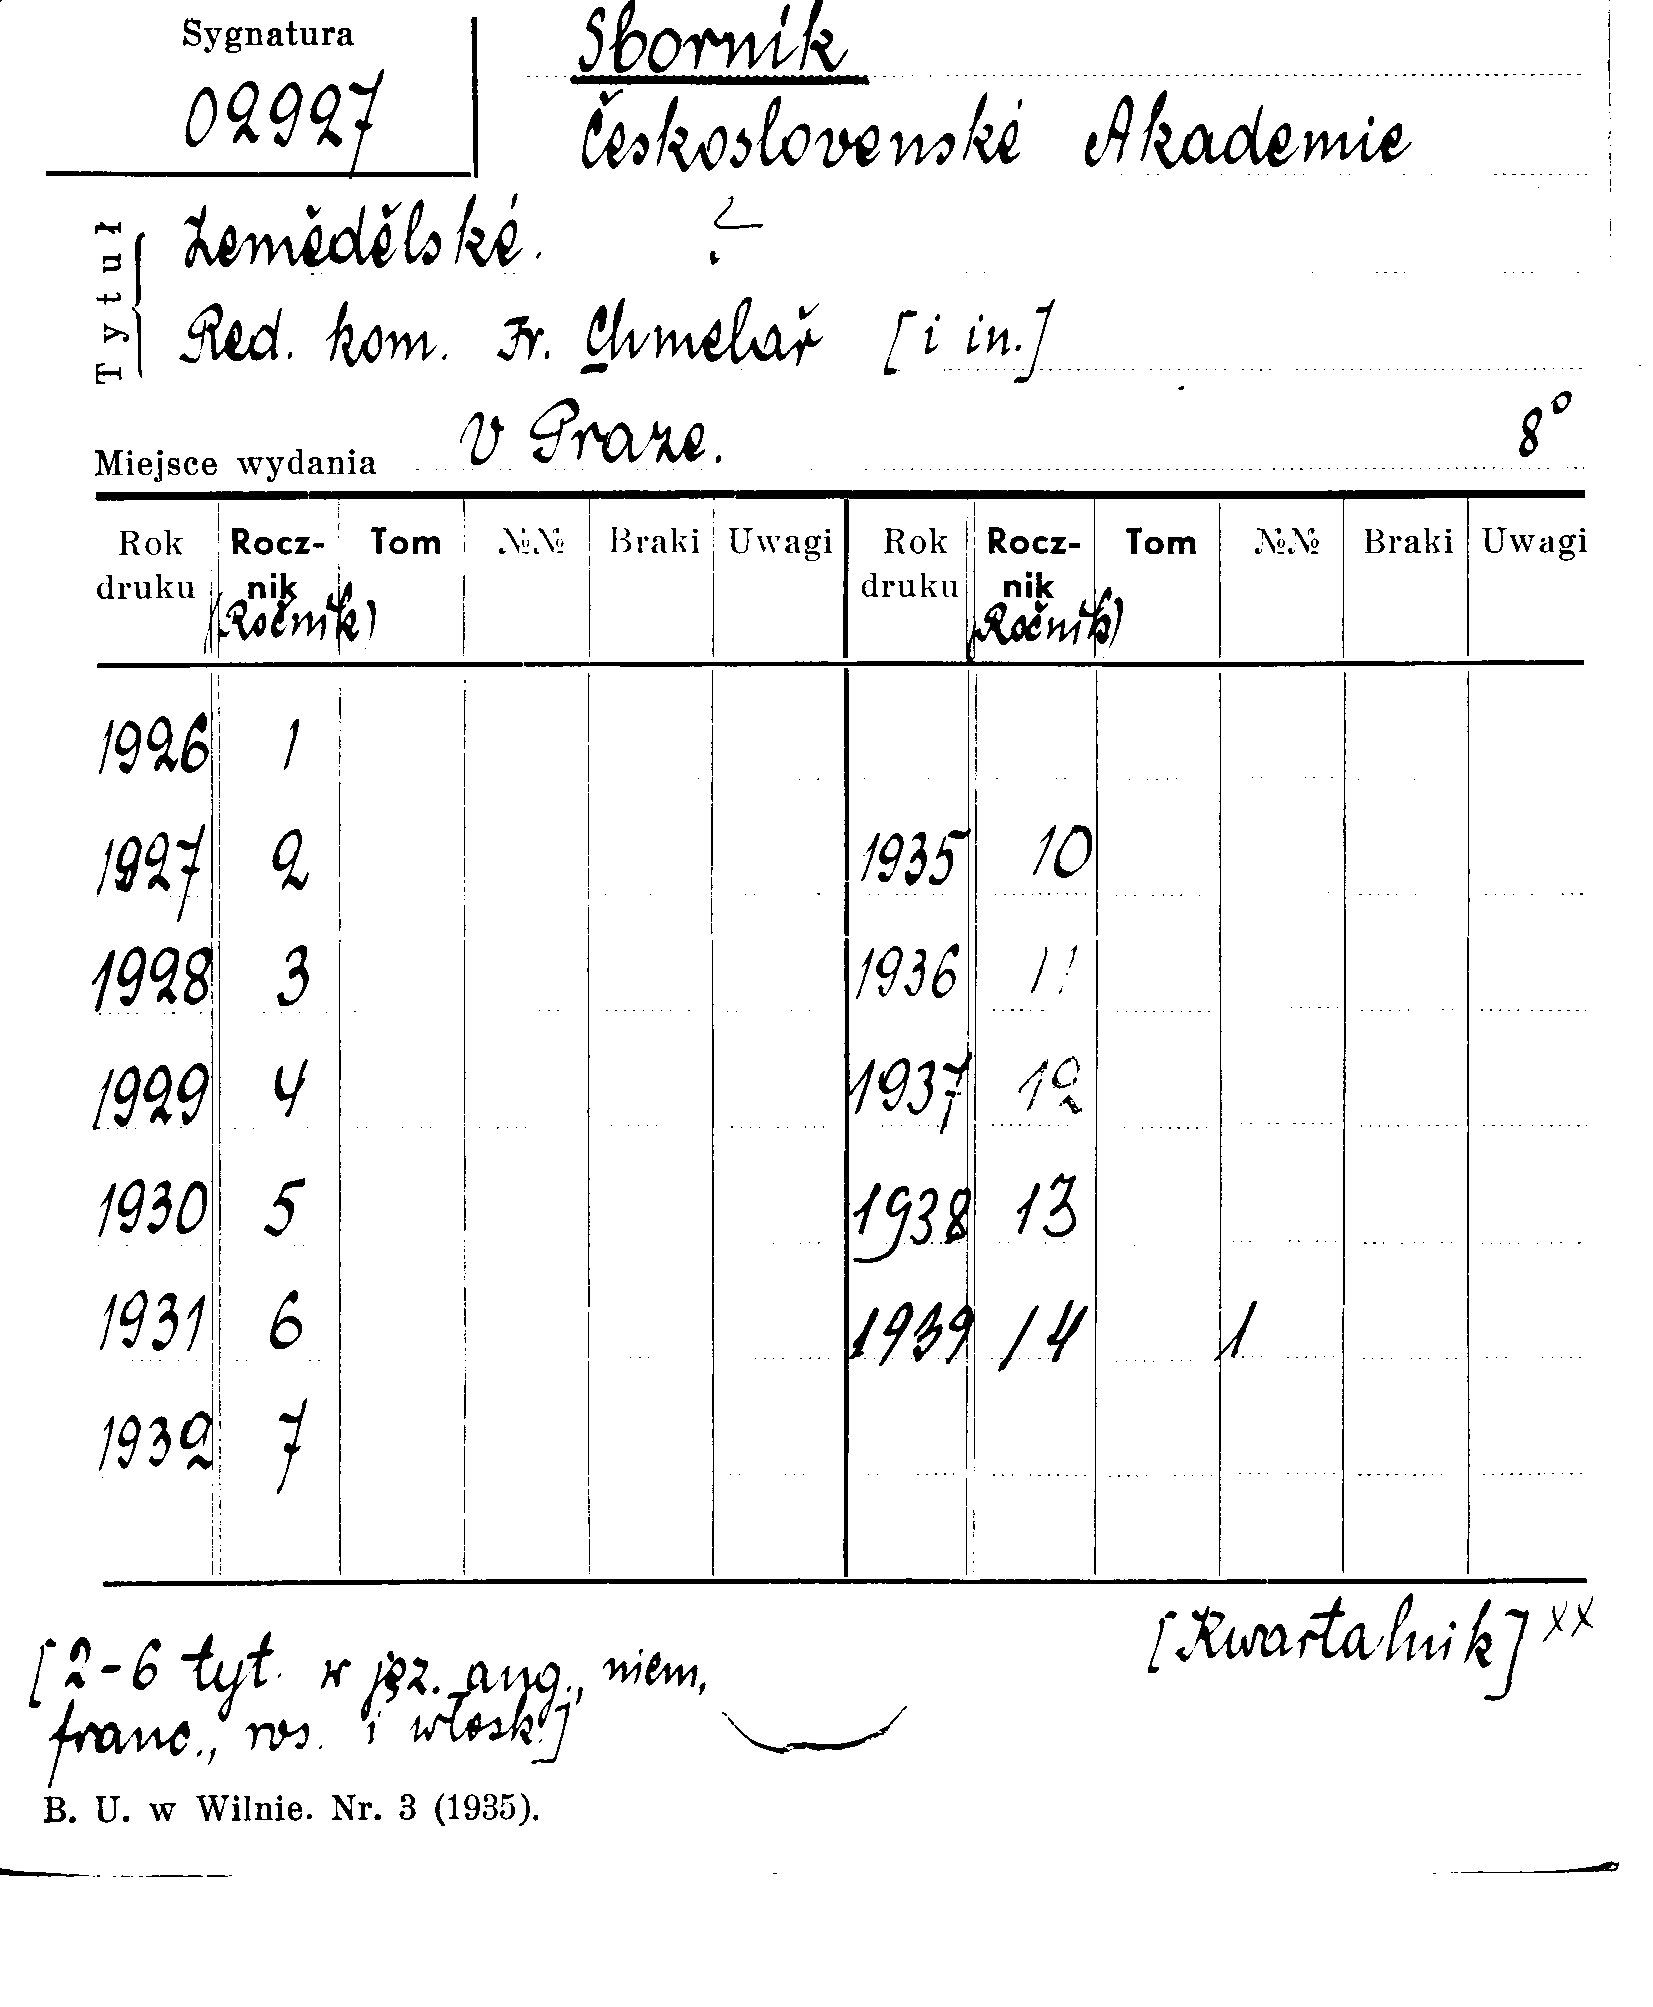 Sygnatura
02927
Sborník
Československé Akademie
Tytuł
Zemědělské.
Red. kom. Fr. Chmelař [i in.]
Miejsce wydania V Praze. 8°
Rok druku Rocznik (Ročník) Tom №№ Braki Uwagi Rok druku Rocznik (Ročník) Tom №№ Braki Uwagi
1926 1
1927 2 1935 10
1928 3 1936 11
1929 4 1937 12
1930 5 1938 13
1931 6 1939 14 1
1932 7
[Kwartalnik] xx
[2-6 tyt. w jęz. ang., niem,
franc., ros. i włosk.]
B. U. w Wilnie. Nr. 3 (1935).